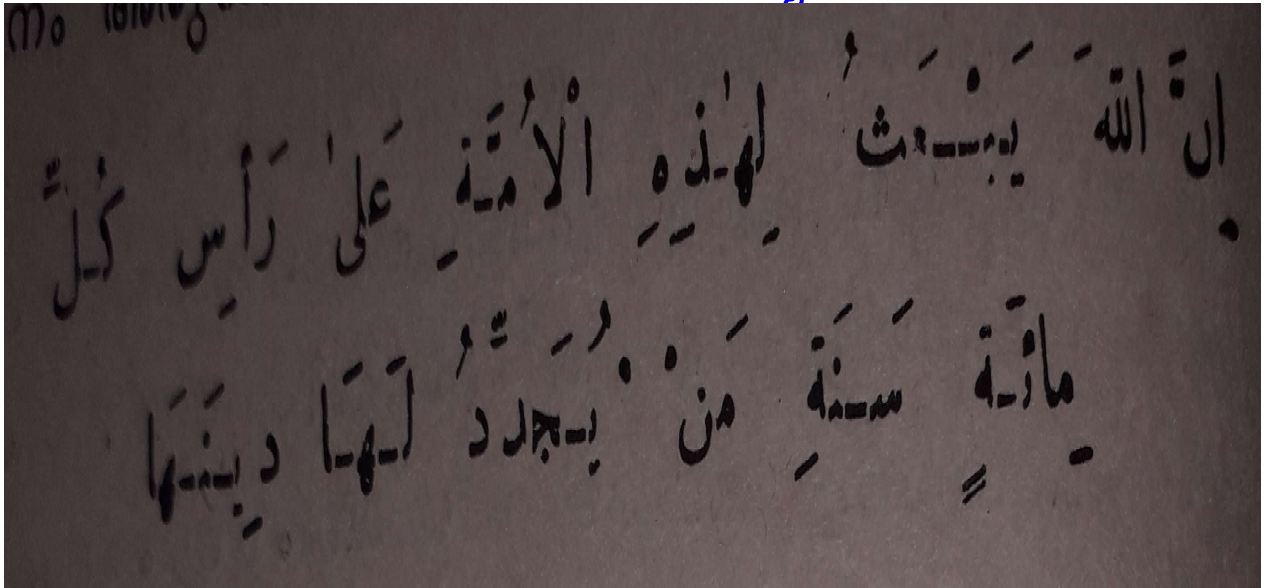 اِنَّ اللّٰهَ يَبْعَثُ لِهٰذِهِ الْاُمَّةِ عَلىٰ رَأسِ كُلِّ
مِائَةٍ سَنَةِ مَنْ يُجَدِّدُ لَهَا دِينَهَا